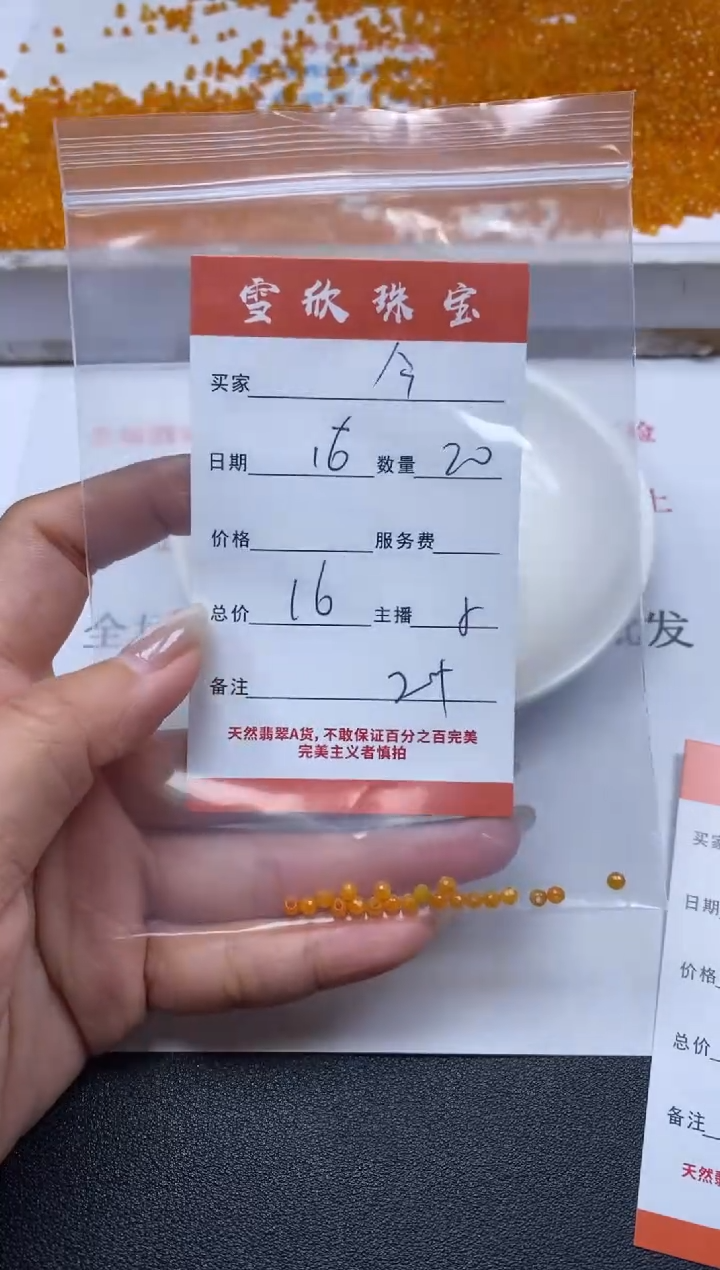 雪欣珠宝
买家 今
日期 16 数量 20
价格 服务费
总价 16 主播
备注
天然翡翠A货，不敢保证百分之百完美
完美主义者慎拍
发
买家
日期
价格
总价
备注
天然翡